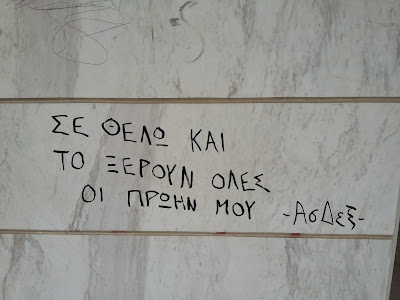 ΣΕ ΘΕΛΩ ΚΑΙ
ΤΟ ΞΕΡΟΥΝ ΟΛΕΣ
ΟΙ ΠΡΩΗΝ ΜΟΥ -ΑσΔεξ-